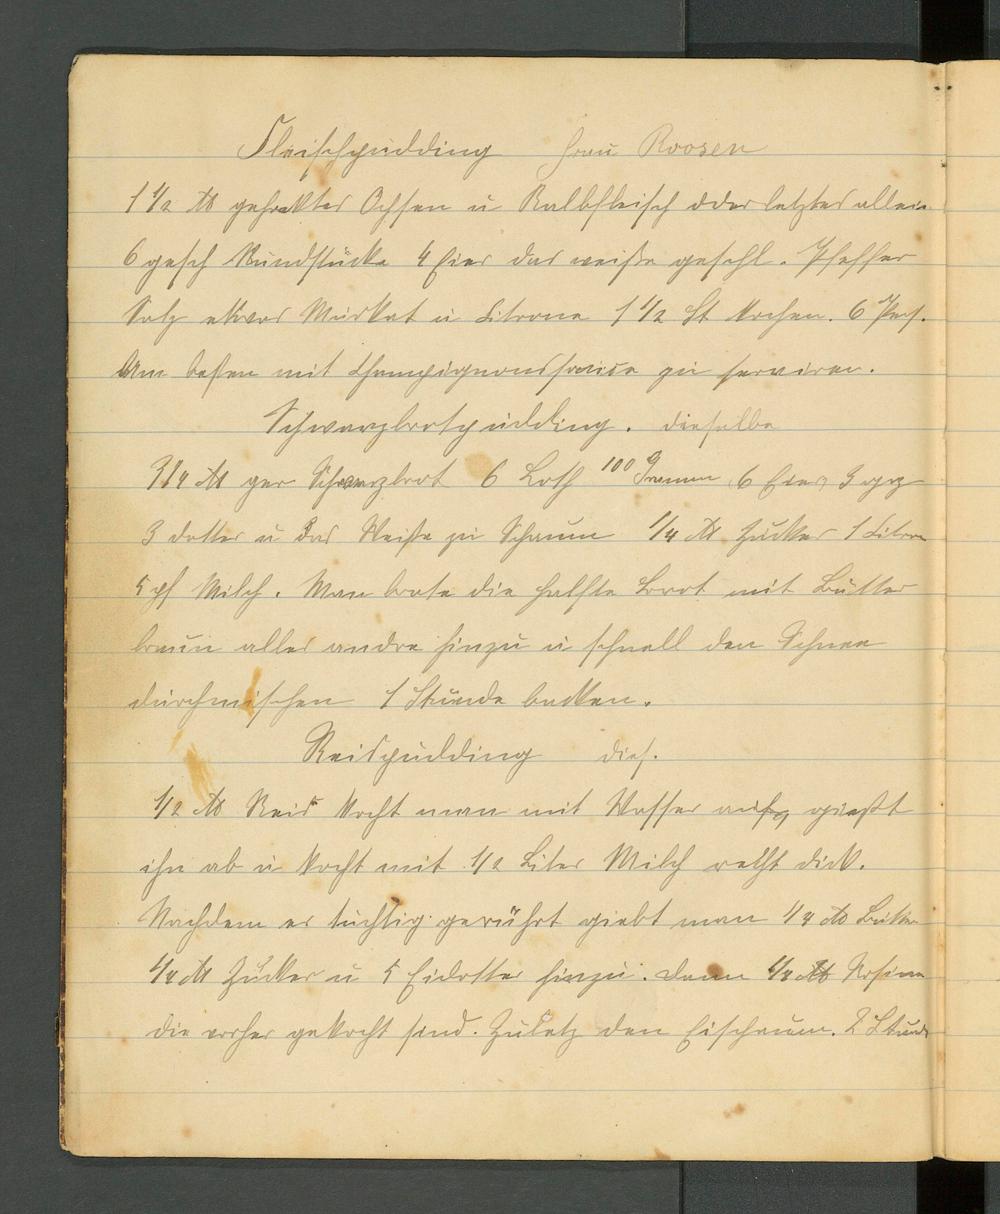 Fleischpudding Frau Roosen
1 1/2 ℔ gehacktes Ochsen u Kalbfleisch oder letztes allein
6 gesch Rundstücke 4 Eier das weiße geschl. Pfeffer
Salz etwas Muskat u Citrone 1 1/2 St kochen. 6 Pers.
Am besten mit Champignonssauce zu serviren.
Schwarzbrotpudding. dieselbe
3/4 ℔ ger Schwarzbrot 6 Loth 100 Gramm 6 Eier, 3 grz
3 dotter u das Weiße zu Schaum 1/4 ℔ Zucker 1 Citron
5 pf Milch. Man brate die halfte Brot mit Butter
braun alles andre hinzu u schnell den Schnee
durchmischen 1 Stunde backen.
Reispudding dies.
1/2 ℔ Reis kocht man mit Wasser auf, gießt
ihn ab u kocht mit 1/2 Liter Milch recht dick.
Nachdem er tüchtig gerührt giebt man 1/4 ℔ Butter
1/4 ℔ Zucker u 5 Eidotter hinzu. dann 1/4 ℔ Rosinen
die vorher gekocht sind. Zuletz den Eischaum. 2 Stunde